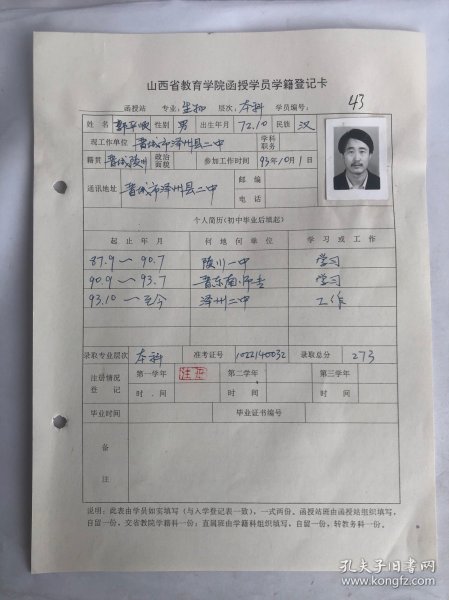 山西省教育学院函授学员学籍登记卡
函授站 专业：生物 层次：本科 学员编号： 43
姓名 性别 男 出生年月 72.10 民族 汉
现工作单位 晋城市泽州县二中 学科职务
籍贯 晋城陵川 政治面貌 参加工作时间 93年10月1日
通讯地址 晋城市泽州县二中 邮编
电话
个人简历（初中毕业后填起）
起止年月 何地何单位 学习或工作
87.9～90.7 陵川一中 学习
90.9～93.7 晋东南师专 学习
93.10～至今 泽州二中 工作
录取专业层次 本科 准考证号 1022140032 录取总分 273
注册情况登记 第一学年 注册 第二学年 第三学年
时间 时间 时间
毕业时间 毕业证书编号
备注
说明：此表由学员如实填写（与入学登记表一致），一式两份。函授站班由函授站组织填写，
自留一份，交省教院学籍科一份；直属班由学籍科组织填写，自留一份，转教务科一份。
孔夫子旧书网
www.kongfz.com